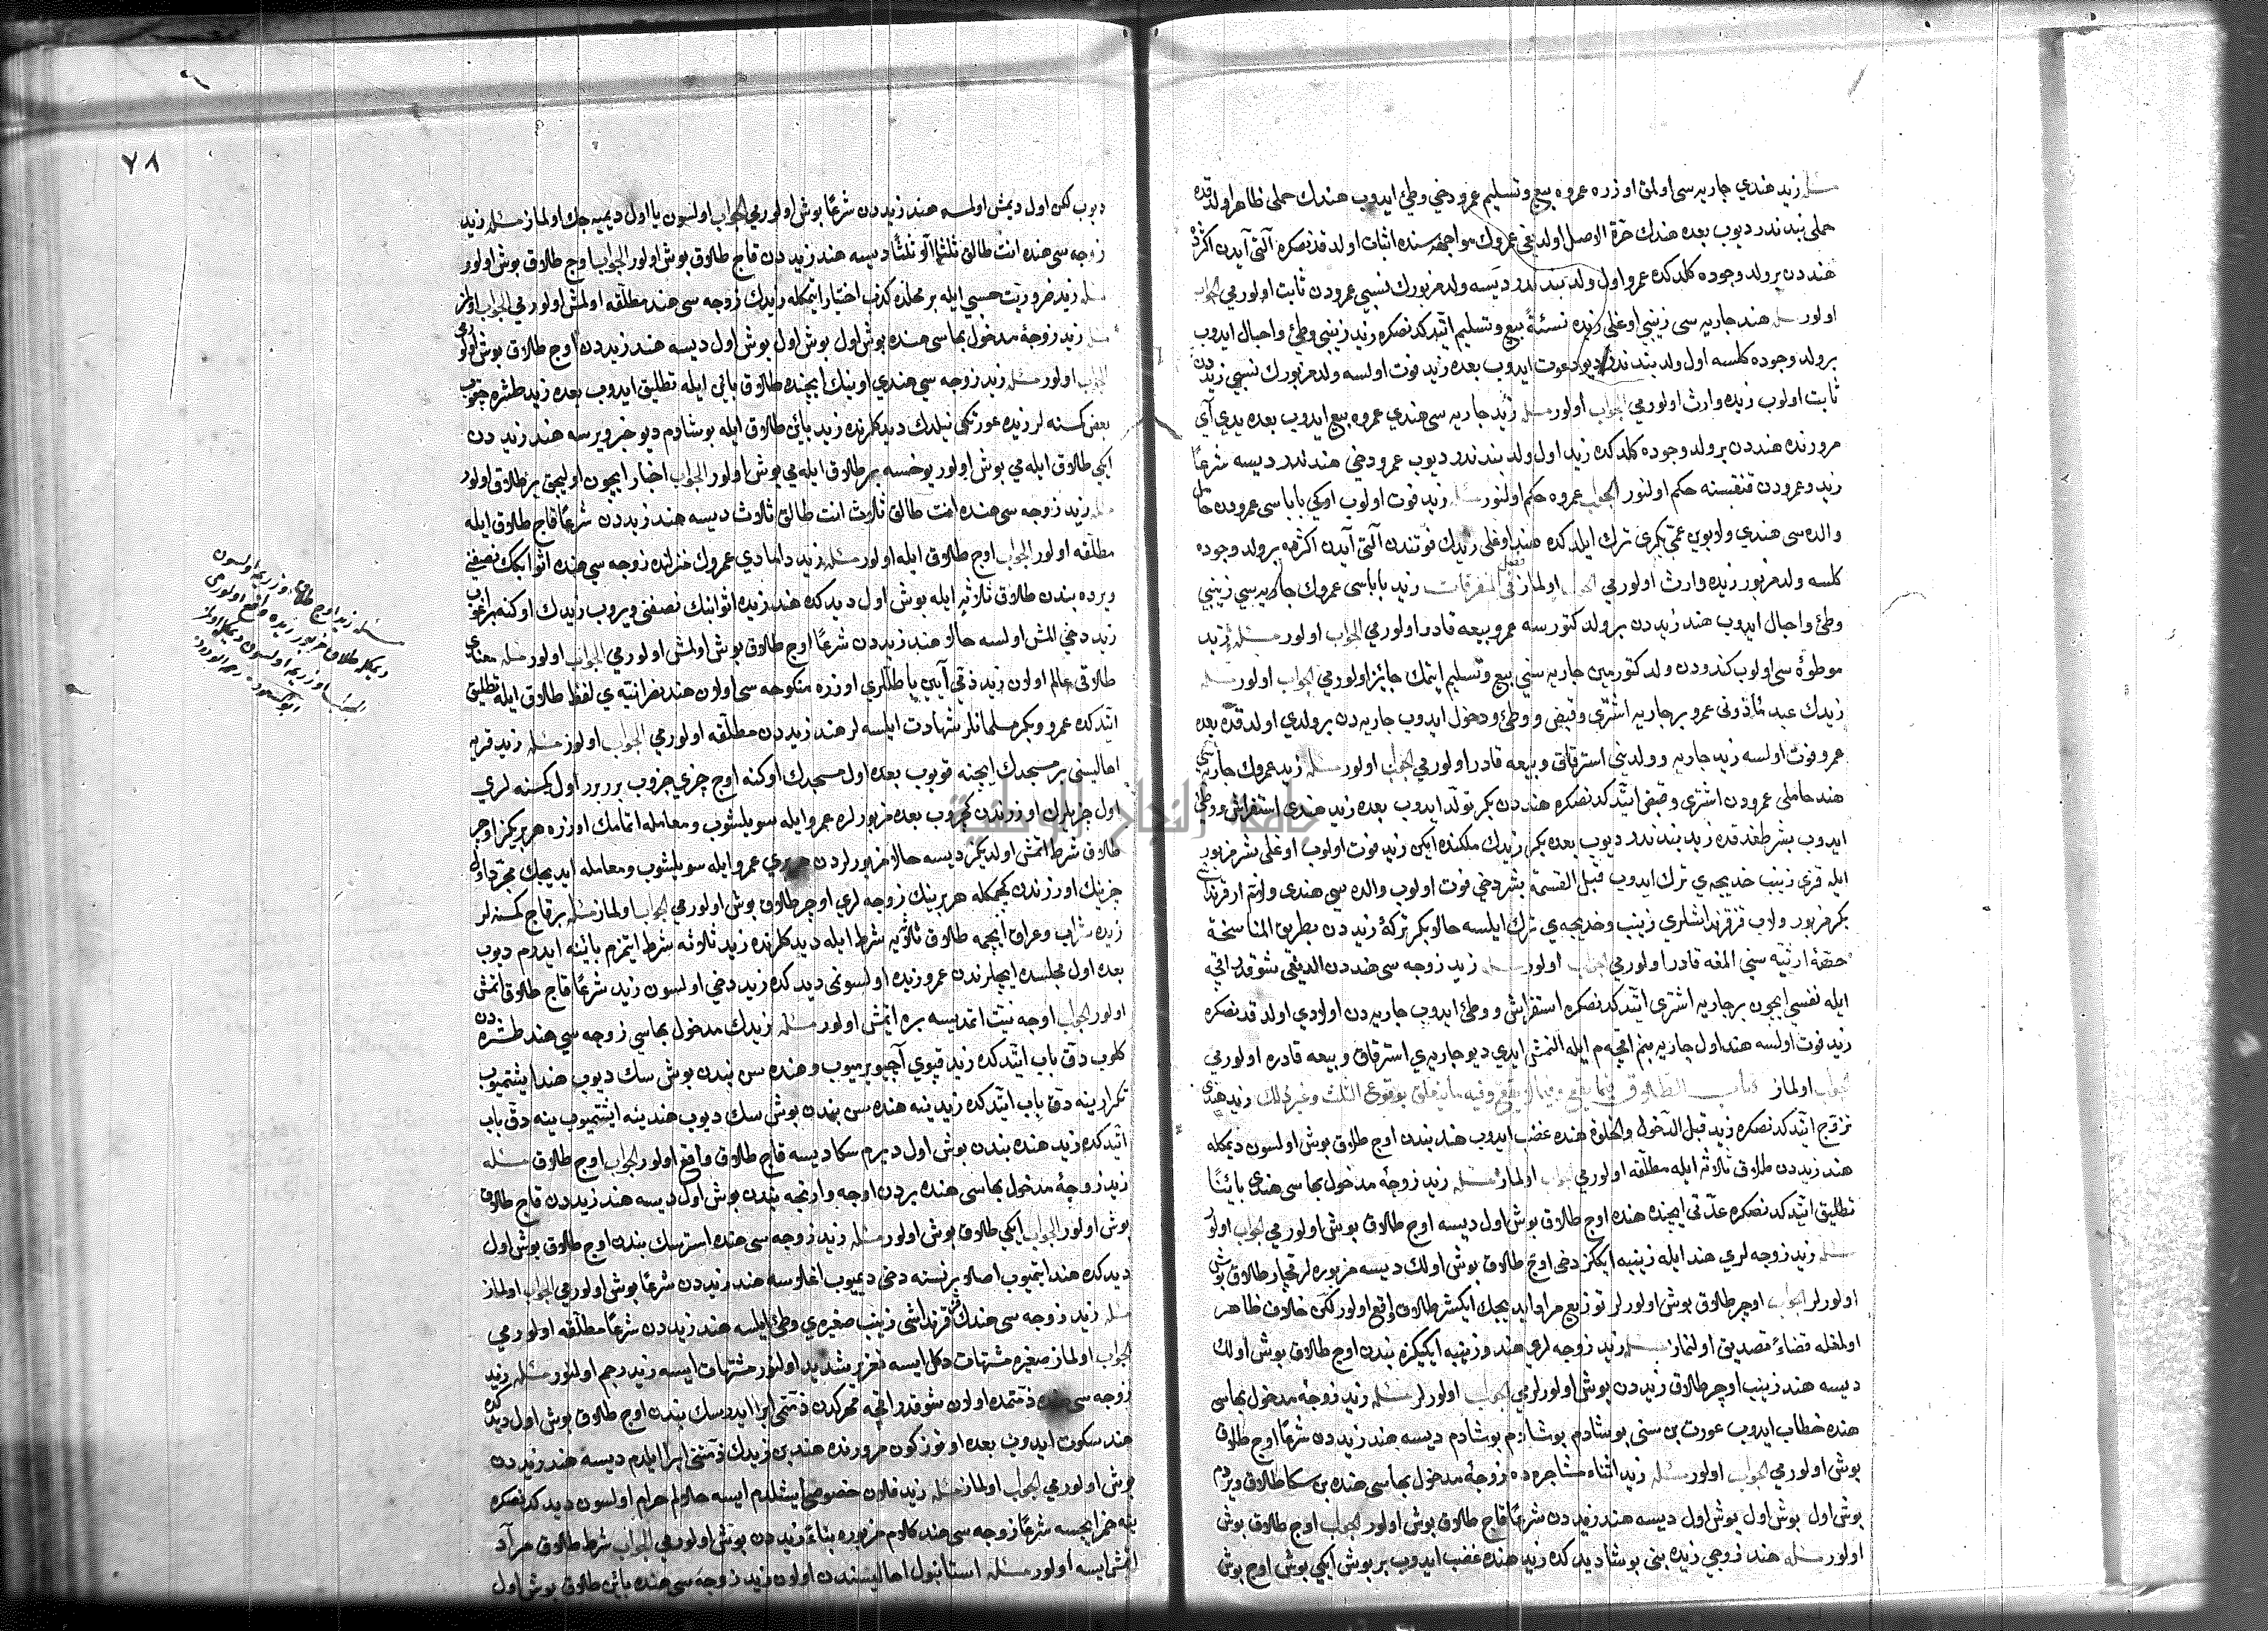 مسئله زيد هندي جاريه سى اولمق اوزره عمروه بيع وتسليم عمرو دخي وطئ ايدوب هندك حملى ظاهر اولدقده
حملى بندندر ديوب بعده هندك حرة الاصل اولديغى عمروك مواجهه سنده اثبات اولندقدنصكره آلتى آيدن اكثرده
هندن بر ولد وجوده كلدكده عمرو اول ولد بندندر ديسه ولد مزبورك نسبى عمرودن ثابت اولورمى الجواب
اولور مسئله هند جاريه سى زينبى اوغلى زيده نسئة بيع وتسليم اتدكدنصكره زيد زينبى وطئ واحبال ايدوب
بر ولد وجوده كلسه اول ولد بندندر ديو دعوت ايدوب بعده زيد فوت اولسه ولد مزبورك نسبى زيددن
ثابت اولوب زيده وارث اولورمي الجواب اولور مسئله زيد جاريه سى هندي عمروه بيع ايدوب بعده يدي آي
مرورنده هندن بر ولد وجوده كلدكده زيد اول ولد بندندر ديوب عمرو دخي بندندر ديسه شرعا
زيد وعمرودن قنقيسنه حكم اولنور الجواب عمروه حكم اولنور مسئله زيد فوت اولوب اوكي باباسى عمرودن حامل
والده سى هندي ولابوين عمى بكري ترك ايلدكده هند اوغلى زيدك فوتندن آلتى آيدن اكثرده بر ولد وجوده
كلسه ولد مزبور زيده وارث اولورمي الجواب اولماز فصل فى المتفرقات زيد باباسى عمروك جاريه سي زينبي
وطئ واحبال ايدوب هند زيددن بر ولد كتورسه عمرو بيعه قادر اولورمي الجواب اولور مسئله زيد
موطوءه سى اولوب كندودن ولد كتورمين جاريه سني بيع وتسليم ايتمك جايز اولورمى الجواب اولور مسئله
زيدك عبد مأذونى عمرو بر جاريه اشترى وقبض ووطئ ودخول ايدوب جاريه دن بر ولدي اولدقده بعده
عمرو فوت اولسه زيد جاريه وولدينى استرقاق وبيعه قادر اولورمي الجواب اولور مسئله زيد عمروك جاريه سى
هند حاملى عمرودن اشترى وقبض اتدكدنصكره هندن بكر تولد ايدوب بعده زيد هندى استفراش ووطئ
ايدوب بشر طوغدقده زيد بندندر ديوب بعده بكر زيدك ملكنده ايكن زيد فوت اولوب اوغلى بشر مزبور
ايله قزى زينب خديجه ي ترك ايدوب قبل القسمة بشر دخي فوت اولوب والده سى هندى
بكر مزبور ولاب قزقرنداشلرى زينب وخديجه ي ترك ايلسه حالا بكر تركهٔ زيددن بطريق المناسخة
حصهٔ ارثيه سني المغه قادر اولورمي الجواب اولور مسئله زيد زوجه سى هنددن الديغى شوقدر اقچه
ايله نفسي ايچون بر جاريه اشترى اتدكدنصكره استفراش ووطئ ايدوب جاريه دن اولادي اولدقدنصكره
زيد فوت اولسه هند اول جاريه بنم اقچه م ايله النمش ايدي ديو جاريه ي استرقاق وبيعه قادره اولورمي
الجواب اولماز كتاب الطلاق فيما يقع وفيما لا يقع وفيه ما يتعلق بوقوع الثلث وغير ذلك زيد هندى
تزوج اتدكدنصكره زيد قبل الدخول والخلوة هنده غضب ايدوب هند بندن اوچ طلاق بوش اولسون ديمكله
هند زيددن طلاق ثلاثه ايله مطلقه اولورمى الجواب اولماز مسئله زيد زوجهٔ مدخول بهاسى هندى باينا
تطليق اتدكدنصكره عدتى ايچنده هنده اوچ طلاق بوش اول ديسه اوچ طلاق بوش اولورمي الجواب اولور
مسئله زيد زوجه لري هند ايله زينبه ايككز دخى اوچ طلاق بوش اولك ديسه مزبوره لر قچار طلاق بوش
اولورلر الجواب اوچر طلاق بوش اولورلر توزيع مراد ايديجك ايكيشر طلاق واقع اولور لكن خلاف ظاهر
اولمغله قضاء تصديق اولنماز مسئله زيد زوجه لري هند وزينبه ايكيكزه بندن اوچ طلاق بوش اولك
ديسه هند زينب اوچر طلاق زيددن بوش اولورلرمي الجواب اولورلر مسئله زيد زوجهٔ مدخول بهاسى
هنده خطاب ايدوب عورت بن سنى بوشادم بوشادم بوشادم ديسه هند زيددن شرعا اوچ طلاق
بوش اولورمي الجواب اولور مسئله زيد اثناء مشاجره ده زوجهٔ مدخول بهاسى هنده بن سكا طلاق ويردم
بوش اول بوش اول بوش اول ديسه هند زيددن شرعا قاچ طلاق بوش اولور الجواب اوچ طلاق بوش
اولور مسئله هند زوجي زيده بنى بوشا ديدكده زيد هنده غضب ايدوب بر بوش ايكي بوش اوچ بوش
٧٨
ديوب لكن اول ديمش اولسه هند زيددن شرعا بوش اولورمي الجواب اولسون يا اول ديميه جك اولماز مسئله زيد
زوجه سى هنده انت طالق ثلثا الّا ثلثا ديسه هند زيددن قاچ طلاق بوش اولور الجواب اوچ طلاق بوش اولور
مسئله زيد ضرورت حسبي ايله بر محلده كذب اختيار ايتمكله زيدك زوجه سى هند مطلقه اولمش اولورمي الجواب اولماز
مسئله زيد زوجهٔ مدخول بهاسى هنده بوش اول بوش اول بوش اول ديسه هند زيددن اوچ طلاق بوش اولورمى
الجواب اولور مسئله زيد زوجه سي هندي اوينك ايچنده طلاق باين ايله تطليق ايدوب بعده زيد طشره چقوب
بعض كسنه لر زيده عورتكى نيلدك ديدكلرنده زيد باين طلاق ايله بوشادم ديو خبر ويرسه هند زيددن
ايكي طلاق ايله مي بوش اولور يوخسه بر طلاق ايله مي بوش اولور الجواب اخبار ايچون اوليجق بر طلاق اولور
مسئله زيد زوجه سى هنده انت طالق ثلاث انت طالق ثلاث ديسه هند زيددن شرعا قاچ طلاق ايله
مطلقه اولور الجواب اوچ طلاق ايله اولور مسئله زيد دامادي عمروك منزلنده زوجه سي هنده اثوابكك نصفنى
ويرده بندن طلاق ثلاثه ايله بوش اول ديدكده هند زيده اثوابنك نصفنى ويروب زيدك اوكنه براغوب
زيد دخي المش اولسه حالا هند زيددن شرعا اوچ طلاق بوش اولمش اولورمي الجواب اولور مسئله معناى
طلاقى عالم اولان زيد ذمى آيين باطللري اوزره منكوحه سى اولان هند نصرانيه ي لفظ طلاق ايله تطليق
اتدكده عمرو وبكر مسلمانلر شهادت ايلسه لر هند زيددن مطلقه اولورمي الجواب اولور مسئله زيد قريه
اهاليسنى بر مسجدك ايچنه قويوب بعده اول مسجدك اوكنه اوچ چزي چزوب برر برر اول كسنه لري
اول چزيلرك اوزرندن كچروب بعده مزبورلره عمرو ايله سويلشوب ومعامله اتمامك اوزره هر بريكز اوچر
طلاق شرط اتمش اولديكز ديسه حالا مزبورلردن هر بري عمرو ايله سويلشوب ومعامله ايديجك مجرد اول
چزينك اوزرندن كچمكله هر برينك زوجه لري اوچر طلاق بوش اولورمي الجواب اولماز مسئله بر قاچ كمسنه لر
زيده شراب وعراق ايچمه طلاق ثلاثه يه شرط ايله ديدكلرنده زيد ثلاثه شرط ايتمزم باينه ايدرم ديوب
بعده اول مجلسده ايچلرندن عمرو زيده اولسونمى ديدكده زيد دخي اولسون زيد شرعا قاچ طلاق اتمش
اولور الجواب اوچه نيت اتمديسه بره اتمش اولور مسئله زيدك مدخول بهاسي زوجه سي هند طشره دن
كلوب دق باب اتدكده زيد قپوي آچيويرميوب وهنده سن بندن بوش سك ديوب هند ايشتميوب
تكرار ينه دق باب اتدكده زيد ينه هنده سن بندن بوش سك ديوب هند ينه ايشتميوب ينه دق باب
اتدكده زيد هنده بندن بوش اول ديرم سكا ديسه قاچ طلاق واقع اولور الجواب اوچ طلاق مسئله
زيد زوجهٔ مدخول بهاسى هنده بردن اوچه وارنجه بندن بوش اول ديسه هند زيددن قاچ طلاق
بوش اولور الجواب ايكي طلاق بوش اولور مسئله زيد زوجه سى هنده استرسك بندن اوچ طلاق بوش اول
ديدكده هند ايتميوب اصلا برنسنه دخى ديميوب اغلاسه هند زيددن شرعا بوش اولورمي الجواب اولماز
مسئله زيد زوجه سى هندك قزقرنداشى زينب صغيره ي وطئ ايلسه هند زيددن شرعا مطلقه اولورمي
الجواب اولماز صغيره مشتهات دكل ايسه تعزير شديد اولنور مشتهات ايسه زيد رجم اولنور مسئله زيد
زوجه سى هنده ذمتمده اولان شوقدر اقچه مهركدن ذمتمى ابرا ايدرسك بندن اوچ طلاق بوش اول ديدكده
هند سكوت ايدوب بعده اوتوز كون مرورنده هند بن زيدك ذمتنى ابرا ايلدم ديسه هند زيددن
بوش اولورمي الجواب اولماز مسئله زيد فلان خصوصى ايشلدم ايسه حلالم حرام اولسون ديدكدنصكره
ينه خمر ايچسه شرعا زوجه سى هند كلام مزبوره بناء زيددن بوش اولورمي الجواب شرط طلاق مراد
اتمش ايسه اولور مسئله استانبول اهاليسندن اولان زيد زوجه سى هنده باين طلاق بوش اول
مسئله زيد اوچ طلاق اوزريمه اولسون
ديمكله طلاق مزبور زيده واقع اولورمى
الجواب اوزريمه اولسون ديمكله اولماز